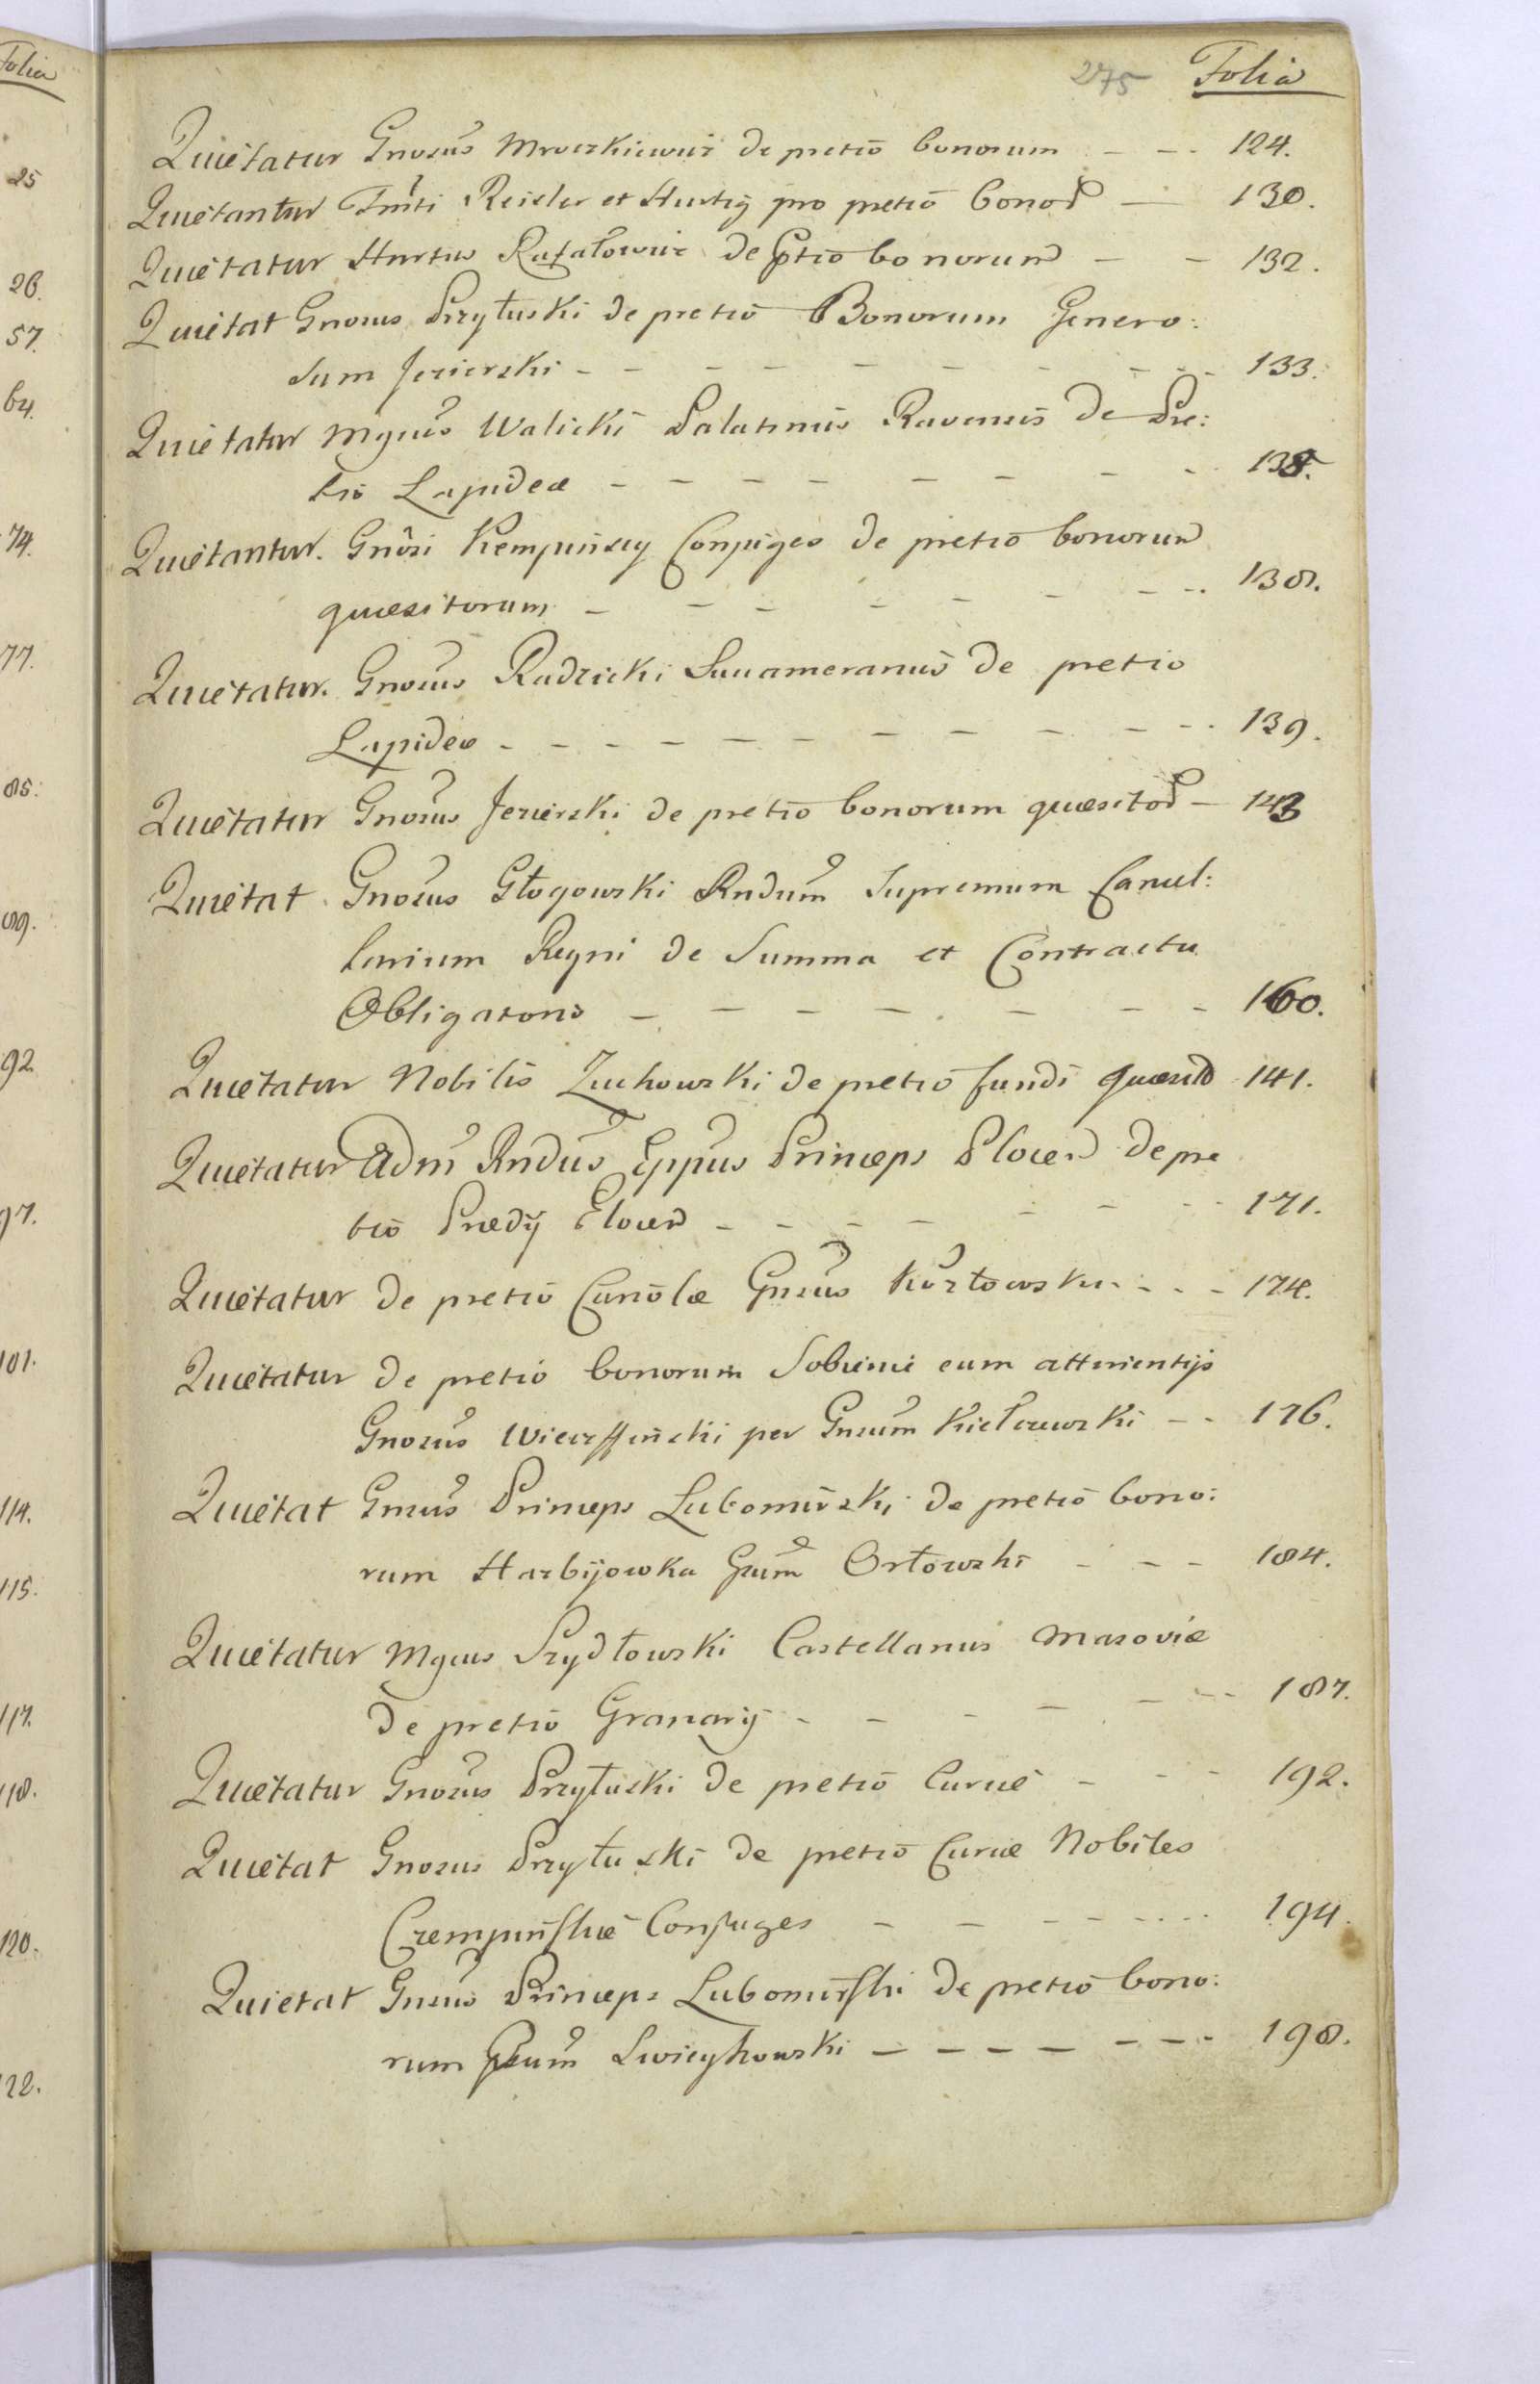 Folia
25
26.
57.
64.
74.
77.
85.
89.
92
97.
101.
114.
115.
117.
118.
120.
122.
275 Folia
Quietatur Gnosus Mroczkiewicz de pretio bonorum - - - 124.
Quietantur Fmti Reisler et Hurtig pro pretio bonor - 130.
Quietatur Hnrtus Rafałowicz de ptio bonorum - - 132.
Quietat Gnosus Przyłuski de pretio Bonorum Genero:
sum Jezierski - - - - - - - - - 133.
Quietatur Mgcus Walicki Palatinus Ravensis de Pre:
tio Lapideæ - - - - - - - - 138.
Quietantur. Gnosi Kempinscy Conjuges de pretio bonorum
quæsitorum - - - - - - - - 138.
Quietatur. Gnosus Radzicki Succameranus de pretio
Lapideæ - - - - - - - - - - 139.
Quietatur Gnosus Jezierski de pretio bonorum quæsitor - 143
Quietat Gnosus Głogowski Rndum Supremum Cancel:
larium Regni de Summa et Contractu
Obligatorio - - - - - - - 160.
Quietatur Nobilis Zuchowski de pretio fundi quæsito 141.
Quietatur Adm Rndus Eppus Princeps Plocen de pre
tio Prædij Plocen - - - - - - - 171.
Quietatur de pretio Curiolæ Gnsus Kozłowski - - - 174.
Quietatur de pretio bonorum Sobienie cum attinentijs
Gnosus Wierzffinski per Gnsum Kiełczewski - - 176.
Quietat Gnsus Princeps Lubomirski de pretio bono:
rum Harbijowka Gnum Orłowski - - - 184.
Quietatur Mgcus Szydłowski Castellanus Masoviæ
de pretio Granarij - - - - - - - 187.
Quietatur Gnosus Przyłuski de pretio Curiæ - - - 192.
Quietat Gnosus Przyłuski de pretio Curiæ Nobiles
Czempinskie Conjuges - - - - - - - 194.
Quietat Gnsus Princeps Lubomirski de pretio bono:
rum Gnum Swieykowski - - - - - - - 198.